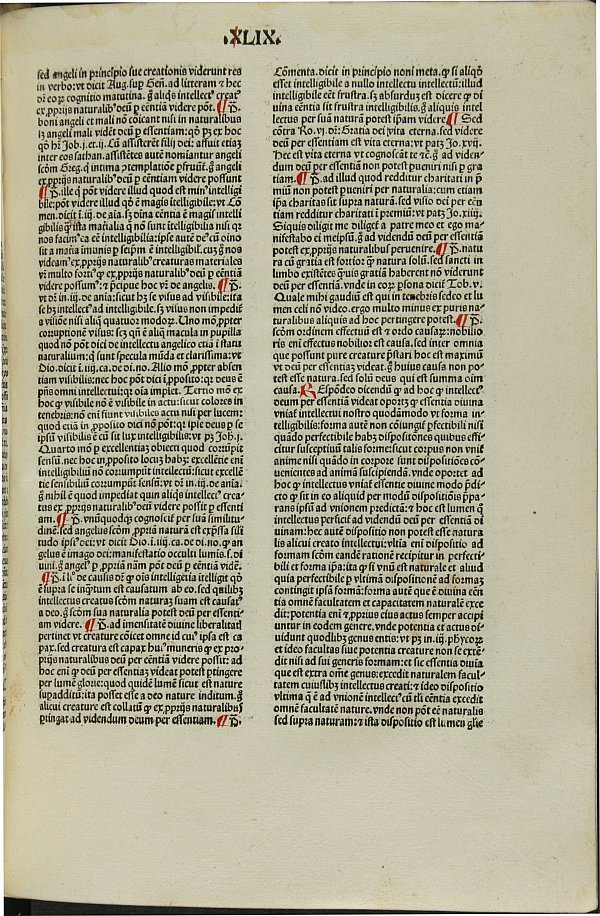 .XLIX.
sed angeli in principio sue creationis viderunt res
in verbo: vt dicit Aug. sup Gen. ad litteram & hec
dr̄ eorꝝ cognitio matutina. g̊ aliqͥs intellectꝰ creatꝰ
ex ꝓprijs naturalibꝰ deū ꝑ cēntiā videre pōt. ¶ P.
boni angeli et mali nō cōicant nisi in naturalibus
sꝫ angeli mali vidēt deū ꝑ essentiam: qđ pꝫ ex hoc
qđ hr̄ Job .j. et .ij. Cū assisterēt filij dei: affuit etiaꝫ
inter eos sathan. assistētes autē nominantur angeli
ex ꝓprijs naturalibꝰ deū ꝑ cēntiam videre possunt
¶ P. ille qͥ pōt videre illud quod est minꝰ intelligi
bile: pōt videre illud qđ ē magis ītelligibile: vt Cō
men. dicit ī .iij. de aīa. sꝫ dīna cēntia ē magis intelli
gibilis qͣꝫ ista materialia q̄ nō sunt ītelligibilia nisi qꝛ
nos facimꝰ ea cē intelligibilia: ipse autē deꝰ cū oīno
sit a matia imunis ꝑ seipm̄ ē intelligibilꝰ. cuꝫ g̊ nos
videamꝰ ex ꝓprijs naturalibꝰ creaturas materiales
vr̄ multo fortiꝰ qđ ex ꝓprijs naturalibꝰ deū ꝑ cēntiā
videre possumꝰ: & p̄cipue hoc vr̄ de angelis. ¶ P.
vt dr̄ in .iij. de anīa: sicut hꝫ se visus ad visibile: ita
se hꝫ intellectꝰ ad intelligibile. sꝫ visus non impedit̄
a visiōe nisi aliqͦ quatuor modoꝝ. Uno mō. ꝓpter
corruptionē visus: seꝫ qn̄ ē aliqͣ macula in pupilla
quod nō pōt dici de intellectu angelico etiā ī statu
naturalium: qꝛ sunt specula mūda et clarissima: vt
Dio. dicit ī .iiij. ca. de di. no. Alio mō. ꝓpter absen
tiam visibilis: nec hoc pōt dici ī ꝓposito: qꝛ deus ē
p̄ns omni intellectui: qꝛ oīa implet. Tertio mō ex
hoc qđ visibile nō ē visibile in actu: sicut colores in
tenebris: nō enī sunt visibiles actu nisi per lucem:
quod etiā in ꝓposito dici nō pōt: qꝛ ipse deus ꝑ se
ipsū visibilis ē cū sit lux intelligibilis: vt pꝫ Joh .j.
Quarto mō ꝑ excellentiaꝫ obiecti quod corrūpit
sensū. nec hoc in ꝓposito locuꝫ habꝫ: excellētie enī
intelligibiliū nō corrumpūt intellectū: sicut excellē
tie sensibiliū corrumpūt sensū: vt dr̄ in .iij. de anīa.
g̊ nihil ē quod impediat quin aliqͥs intellecꝰ crea-
tus ex ꝓprijs naturalibꝰ deū videre possit ꝑ essenti
am. ¶ P. vnūqͦdqꝫ cognoscit per suā similitu-
dinē. sed angelus scōm ꝓpriā naturā est exp̄ssa simi
tudo ipsiꝰ dei: vt dicit Dio. ī .iiij. ca. de di. no. qđ an
gelus ē imago dei: manifestatio occulti luminis .s. di
uini. g̊ angelꝰ ꝑ ꝓpriā nām pōt deū ꝑ cēntiā vidē.
¶ P. ī lꝰ. de causis dr̄ qđ oīs intelligētia ītelligit qđ
ē supra se inqͣꝫtum est causatum ab eo. sed quilibꝫ
intellectus creatus scōm naturaꝫ suam est causatꝰ
a deo. g̊ scōm sua naturalia potest deū per essenti-
am videre. ¶ P. ad imensitatē diuine liberalitatꝭ
pertinet vt creature cōicet omne id cuiꝰ ipsa est ca
pax. sed creatura est capax huiꝰ muneris qđ ex pro-
prijs naturalibus deū per cēntiā videre possit: ad
hoc enī qđ deum per essentiaꝫ videat potest ꝑtingere
per lumē glorie: quod quidē lumē sicut est nature
supadditū: ita posset esse a deo nature inditum. g̊
alicui creature est collatū qđ ex ꝓprijs naturalibus
ꝑtingat ad videndum deum per essentiam. ¶ P.
Cōmenta. dicit in principio noni meta. qđ si aliqđ
esset intelligibile a nullo intellectu intellectū: illud
intelligibile cēt frustra. sꝫ absurduꝫ est dicere qđ di
uina cēntia sit frustra intelligibilis. g̊ aliquis intel
lectus per suā naturā potest ipsam videre ¶ Sed
cōtra Ro. vj. dr̄: Gratia dei vita eterna. sed videre
deum per essentiam est vita eterna: vt patꝫ Jo .xvij.
Hec est vita eterna vt cognoscāt te &c. g̊ ad viden-
dum deū per essentiā non potest pueniri nisi ꝑ gra
tiam. ¶ P. ad illud quod redditur charitati in p̄
miū non potest pueniri per naturalia: cum etiam
ip̄a charitas sit supra naturā. sed visio dei per cēn
tiam redditur charitati ī premiū: vt patꝫ Jo .xiiij.
Siquis diligit me diligetꝰ a patre meo et ego ma-
nifestabo ei meipsū. g̊ ad vidēndū deū per essentiā
potest ex ꝓprijs naturalibus peruenire. ¶ P. natu
ra cū gratia est fortior qͣꝫ natura solū. sed sancti in
limbo existētes qͣuis gratiā haberent nō viderunt
deum per essentiā. vnde in eorꝝ p̄sona dicit̄ Tob. v.
Quale mihi gaudiū est qui in tenebris sedeo et lu
men celi nō video. ergo multo minus ex puris na-
turalibus aliquis ad hoc per tingere potest. ¶ P.
scōm ordinem effectuum est & ordo causaꝝ: nobilio
ris enī effectus nobilior est causa. sed inter omnia
que possunt pure creature p̄stari hoc est maximū
vt deū per essentiaꝫ videat. g̊ huius causa non po-
test esse natura. sed solū deus qui est summa oīm
causa. ¶ Rn̄deo dicēdū qđ ad hoc qđ intellectꝰ
deum per essentiā videat oportꝫ qđ essentia diuina
vniaf intellectui nostro quodāmodo vt forma in-
telligibilis: forma autē non cōiungif ꝑfectibili nisi
quādo perfectibile habꝫ dispositiōes quibus effi-
citur susceptiuū talis forme: sicut corpus non vnif
anime nisi quādo in corpore sunt dispositiōes cō-
uenientes ad animā suscipiendā. vnde oportet ad
hoc qđ intellectus vniaf essentie diuine modo p̄di-
cto qđ sit in eo aliquid per modū dispositiōis p̄pa-
rans ipsū ad vnionem predictā: & hoc est lumen qđ
intellectus perficif ad videndū deum per essentiā di
uinam: hoc autē dispositio non potest esse natura
lis alicui creato intellectui: vltīa enī dispositio ad
formaꝫ scōm eandē rationē recipitur in perfecti-
bili et forma ip̄a: ita qđ si vnū est naturale et aliud
quia perfectibile ꝑ vltimā dispositionē ad formaꝫ
contingit ipsā formā: forma autē que ē diuina cēn
tia omnē facultatem et capacitatem naturalē exce
dit: potentia enī & ꝓprius eius actus semper accipi
untur in eodem genere. vnde potentia et actus di-
uidunt quodlibꝫ genus entis: vt pꝫ in .iij. phycoꝝ
et ideo facultas siue potentia creature non se extē-
dit nisi ad sui generis formam: et sic essentia diuia
que est extra om̄e genus: excedit naturalem facul-
tatem cuiuslibꝫ intellectus creati: & ideo dispositio
vltima q̄ ē ad vnionē intellecꝰ cū tli cēntia excedit
omnē facultatē nature. vnde non pōt ee naturalis
sed supra naturam: & ista dispositio est lumen glīe